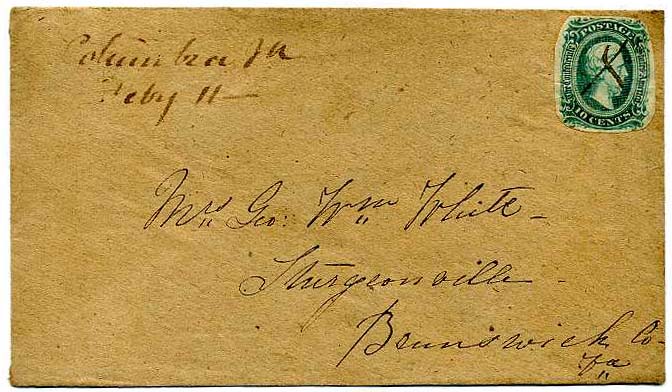 Columbia Va
Feby 11
POSTAGE
10 CENTS
Mrs Geo: Wm White
Sturgeonville
Brunswick Co
Va